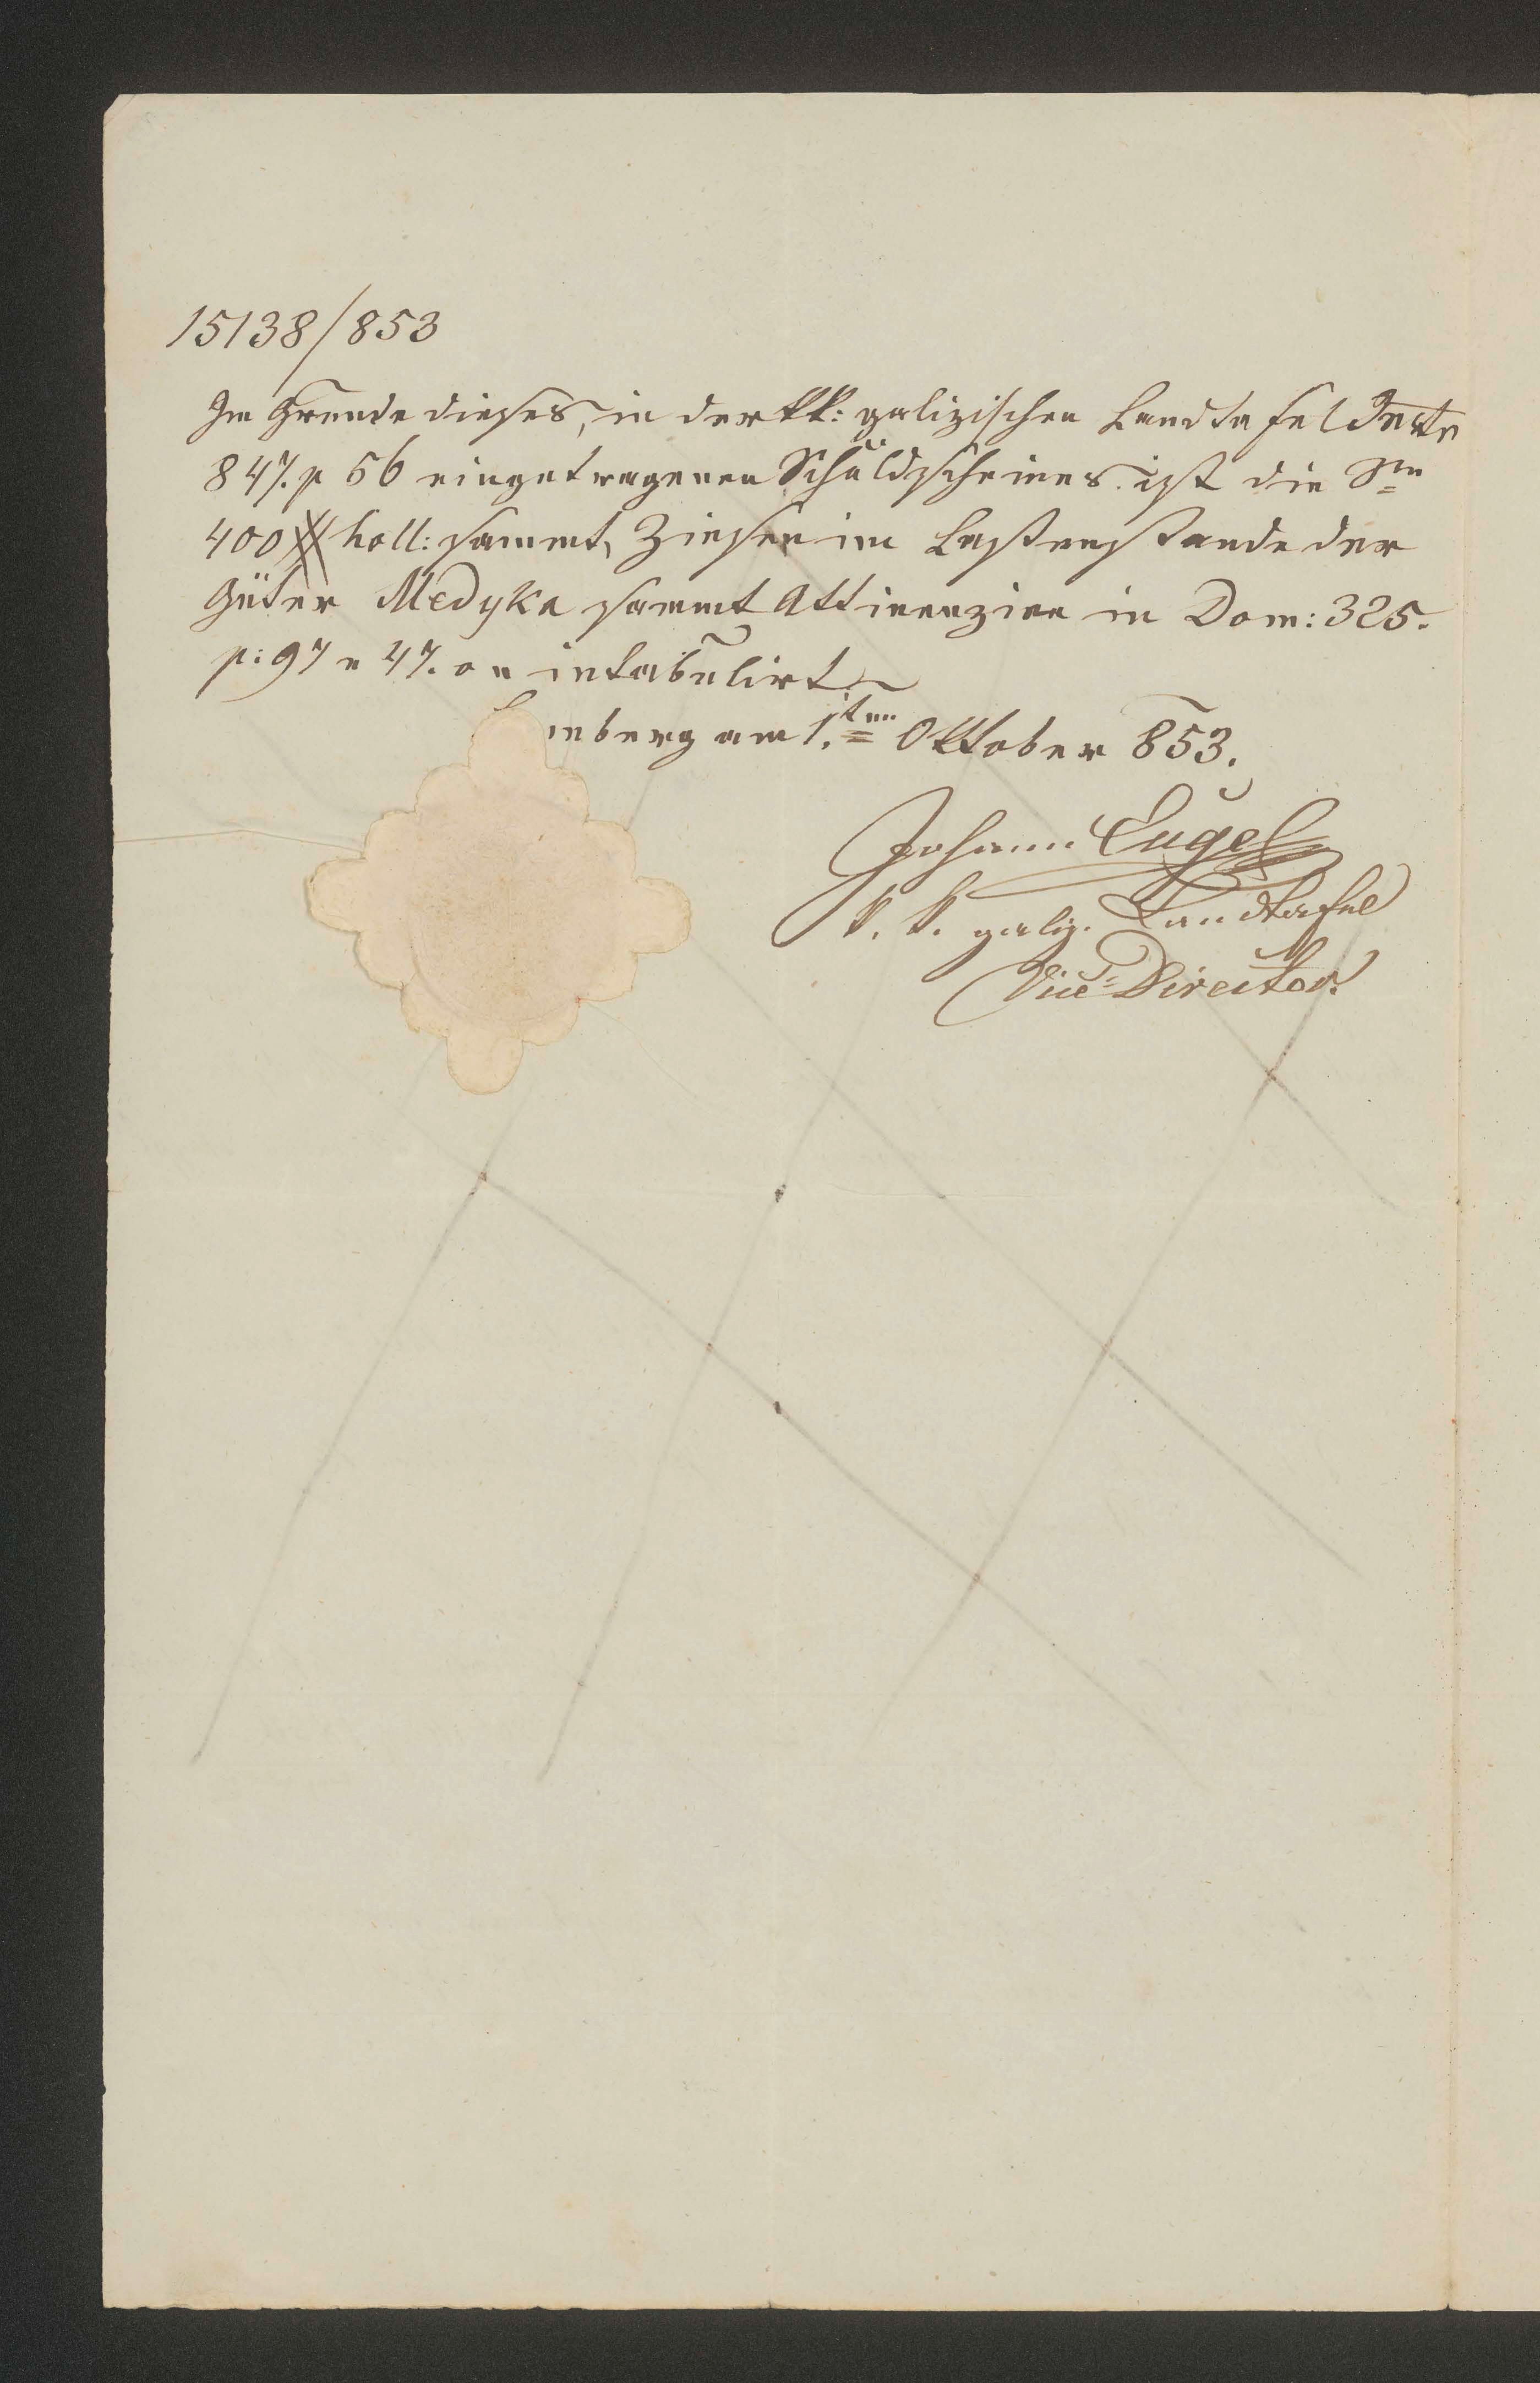 15138/853
Im Grunde dieses, in der kk: galizischen Landtafel Instr
847. p 56 eingetragenen Schuldscheines ist die Sm̅
400 # holl: sammt Zinsen im Lastenstande der
Güter Medyka sammt Attinenzien in Dom: 325.
p: 97 n 47. on intabulirt
mberg am 1.ten Oktober 853.
Johann Engel
k. k. galiz. Landtafel
Vice-Director.